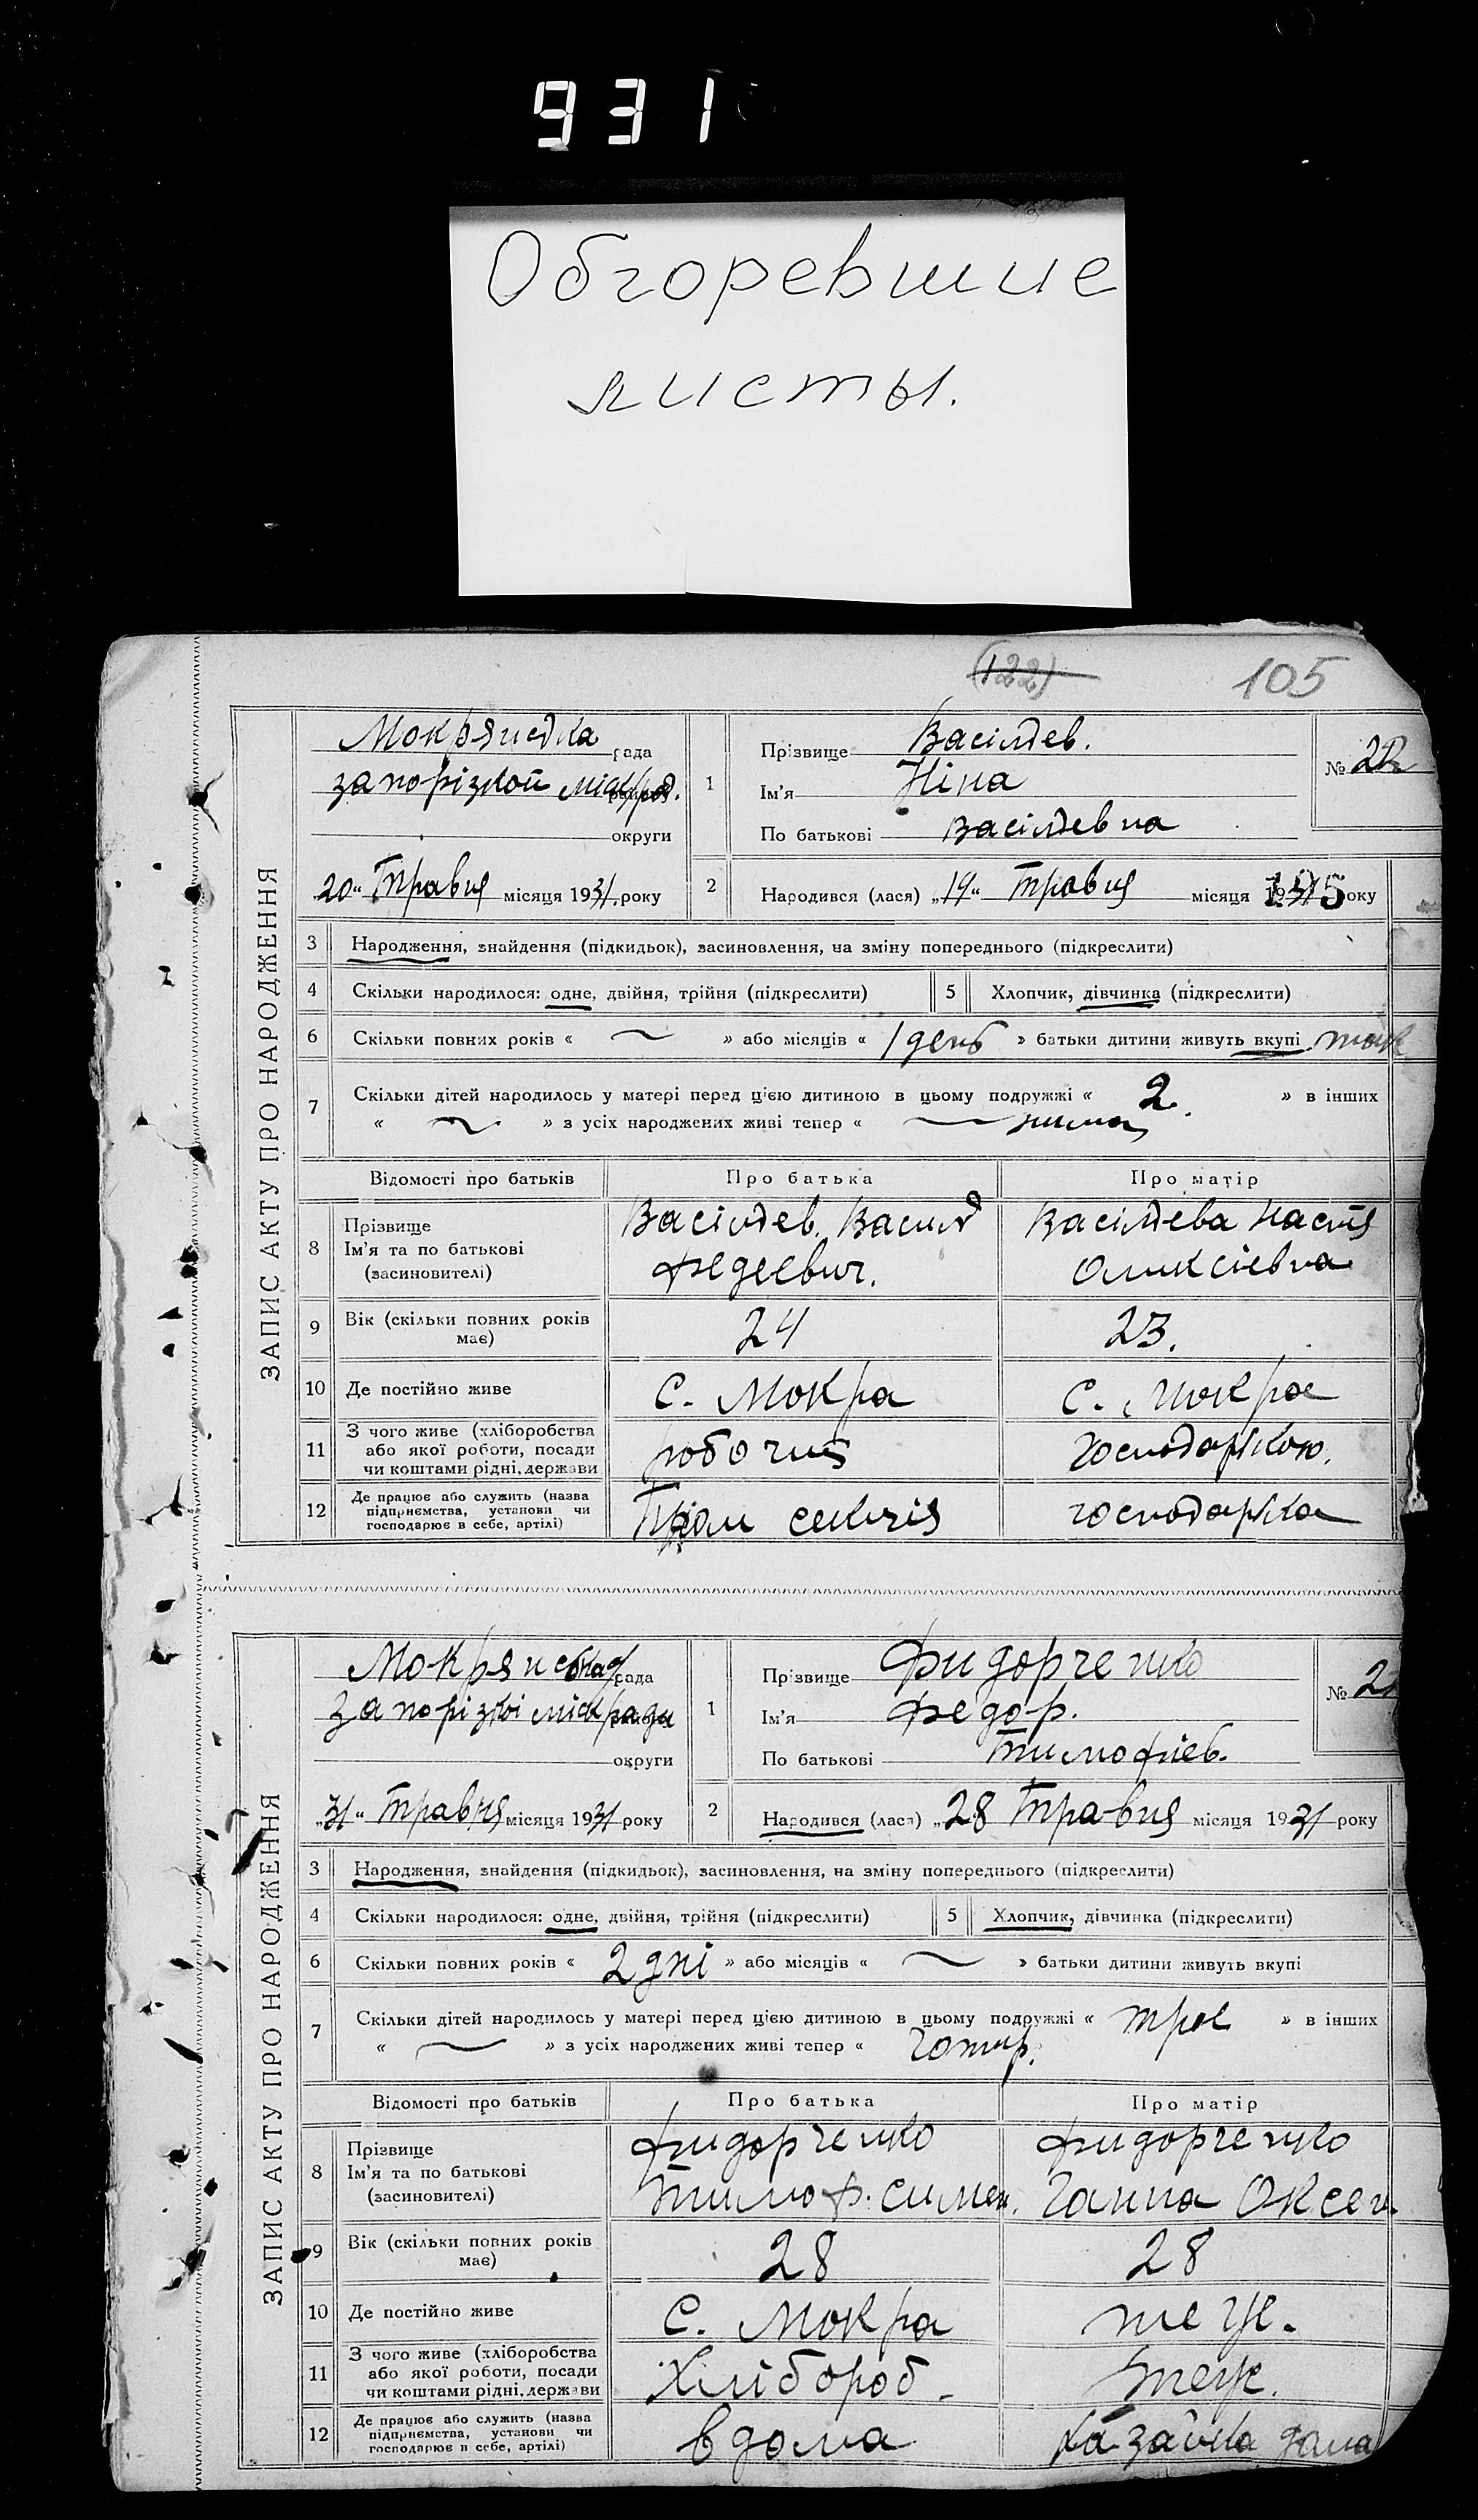 931
Обгоревшие
листы.
(122)
105
ЗАПИС АКТУ ПРО НАРОДЖЕННЯ
Мокрянська рада
запорізкой міск/рад.
округи
20 " Травня місяця 1931 року
1
Прізвище Васілдев.
Ім'я Ніна
По батькові Васілдевна
№
2
Народився (лася) „19" Травня місяця року
195
3 Народження, знайдення (підкидьок), засиновлення, на зміну попереднього (підкреслити)
4 Скільки народилося: одне, двійня, трійня (підкреслити)
5 Хлопчик, дівчинка (підкреслити)
6 Скільки повних років « ~ » або місяців « 1 день » батьки дитини живуть вкупі так
7 Скільки дітей народилось у матері перед цією дитиною в цьому подружжі « 2. » в інших
« ~ » з усіх народжених живі тепер «
Відомості про батьків
Про батька
Про матір
8 Прізвище
Ім'я та по батькові
(засиновителі)
Васілдев. Васил
Федеевич.
Васілдева Настя
Оликсіевна
9 Вік (скільки повних років має)
24
23.
10 Де постійно живе
С. Мокра
С. Мокра
11 З чого живе (хліборобства
або якої роботи, посади
чи коштами рідні, держави
робочий
господаркою.
12 Де працює або служить (назва
підприємства, установи чи
господарює в себе, артілі)
секчія
господарка
ЗАПИС АКТУ ПРО НАРОДЖЕННЯ
рада
запорізкі міск/ради
округи
„31" Травня місяця 1931 року
1
Прізвище Фидорченко
Ім'я Федор.
По батькові Тимофіев.
№
2
Народився (лася) „28 Травня місяця 1931 року
3 Народження, знайдення (підкидьок), засиновлення, на зміну попереднього (підкреслити)
4 Скільки народилося: одне, двійня, трійня (підкреслити)
5 Хлопчик, дівчинка (підкреслити)
6 Скільки повних років « 2 дні » або місяців « ~ » батьки дитини живуть вкупі
7 Скільки дітей народилось у матері перед цією дитиною в цьому подружжі « трое » в інших
« ~ » з усіх народжених живі тепер « чотир.
Відомості про батьків
Про батька
Про матір
8 Прізвище
Ім'я та по батькові
(засиновителі)
Фидорченко
Тимоф. Симен.
Фидорченко
Ганна Оксен.
9 Вік (скільки повних років має)
28
28
10 Де постійно живе
С. Мокра
теж.
11 З чого живе (хліборобства
або якої роботи, посади
чи коштами рідні, держави
Хлібороб.
теж.
12 Де працює або служить (назва
підприємства, установи чи
господарює в себе, артілі)
вдома
хазайка дома